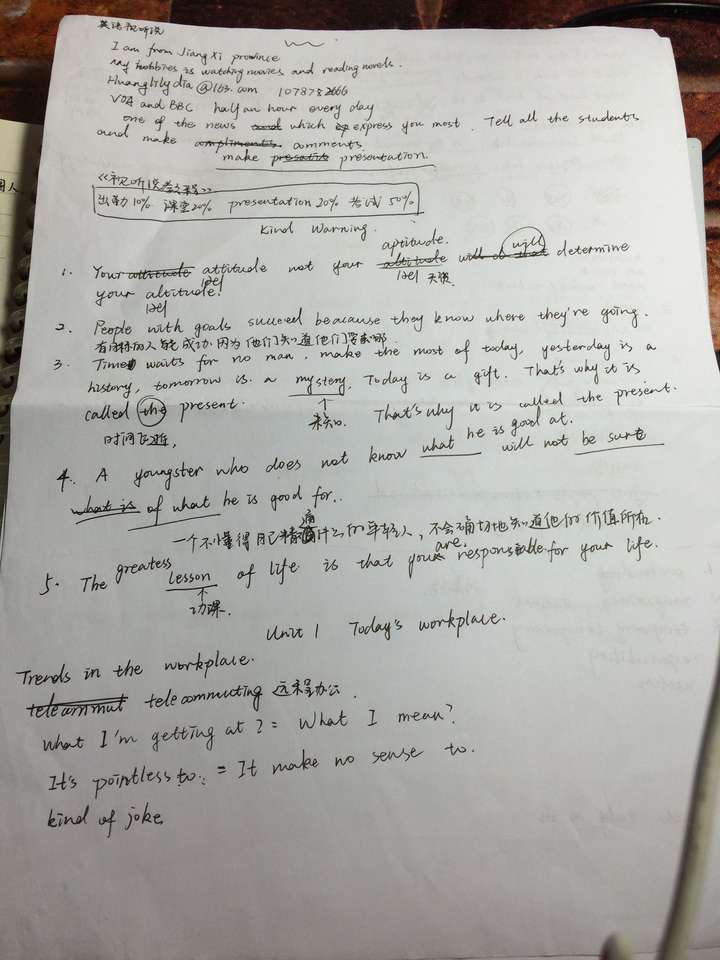 英语视听说
I am from JiangXi province
my hobbies is watching movies and reading novels.
Huanglilydia@163.com 1078752666
VOA and BBC half an hour every day
one of the news which express you most. Tell all the students
and make compliments comments
make presentation.
《视听说教程》
出勤10% 课堂20% presentation 20% 考试50%
Kind Warning.
aptitude.
1. Your attitude attitude not your altitude will determine
your altitude.
天资.
2. People with goals succeed beacause they know where they're going.
有目标的人能成功.因为他们知道他们要去哪
3. Time waits for no man, make the most of today, yesterday is a
history, tomorrow is a mystery, Today is a gift. That's why it is
called the present. 未知. That's why it is called the present.
时间飞逝,
4. A youngster who does not know what he is good at. will not be sure
what is of what he is good for..
一个不懂得自己精通什么的年轻人, 不会确切地知道他的价值所在.
5. The greatess lesson of life is that you are responsible for your life.
功课.
Unit 1 Today's workplace.
Trends in the workplace.
telecommut telecommuting 远程办公.
What I'm getting at? = What I mean?
It's pointless to: = It make no sense to.
kind of joke